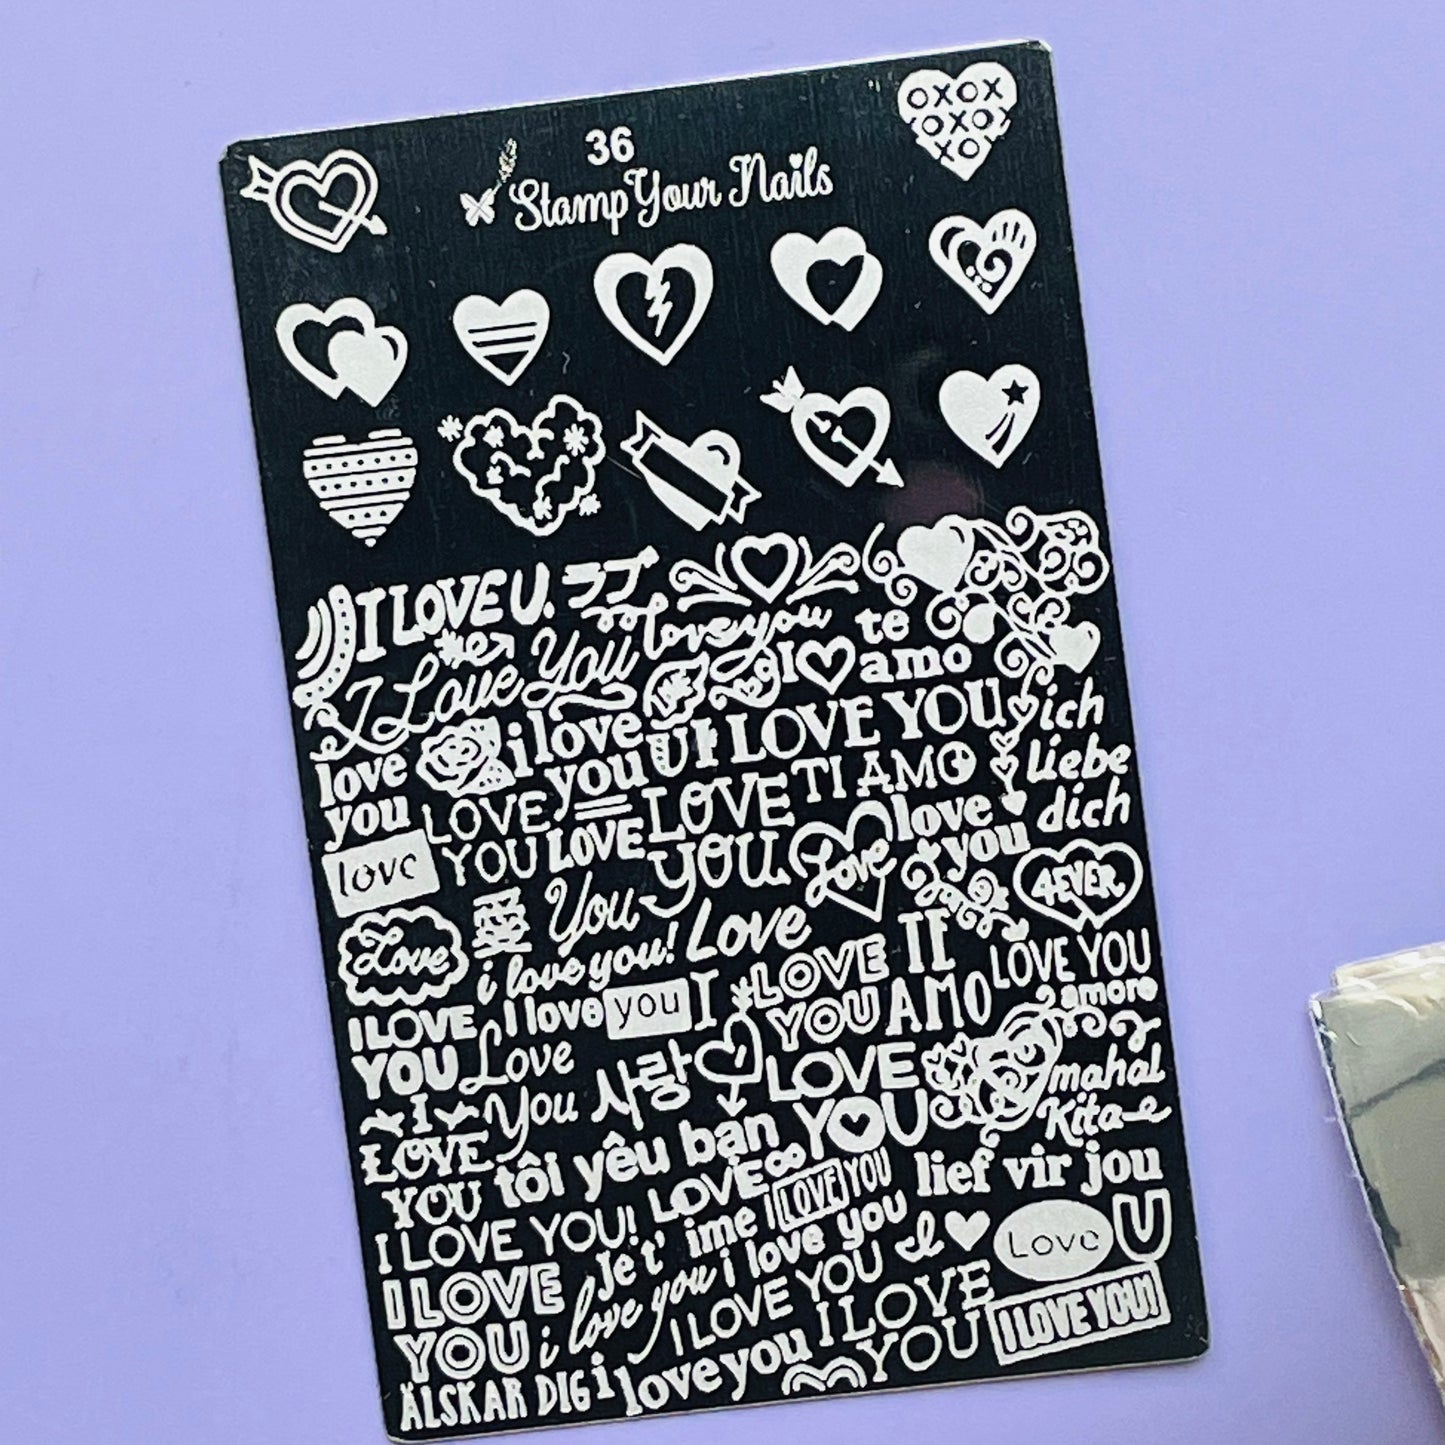 36
Stamp Your Nails
OXOX
OXOX
XO
I LOVE U.
ラブ
love you
te
amo
I Love You
I
i love
you
U
I LOVE YOU
ich
liebe
dich
love
you
LOVE
YOU
LOVE
YOU
TI AMO
love
you
love
LOVE
You
Love
4EVER
Love
愛
i love you!
Love
I
LOVE
YOU
TE
AMO
LOVE YOU
amore
I LOVE
YOU
I love you
Love
You
사랑
LOVE
YOU
mahal
Kita
I
LOVE
YOU
tôi yêu bạn
lief vir jou
I LOVE YOU!
LOVE
I LOVE YOU
Je t' ime
i love you
I
Love
U
I LOVE
YOU
i love you
I LOVE YOU
I LOVE
YOU
I LOVE YOU!
ÄLSKAR DIG
i love you